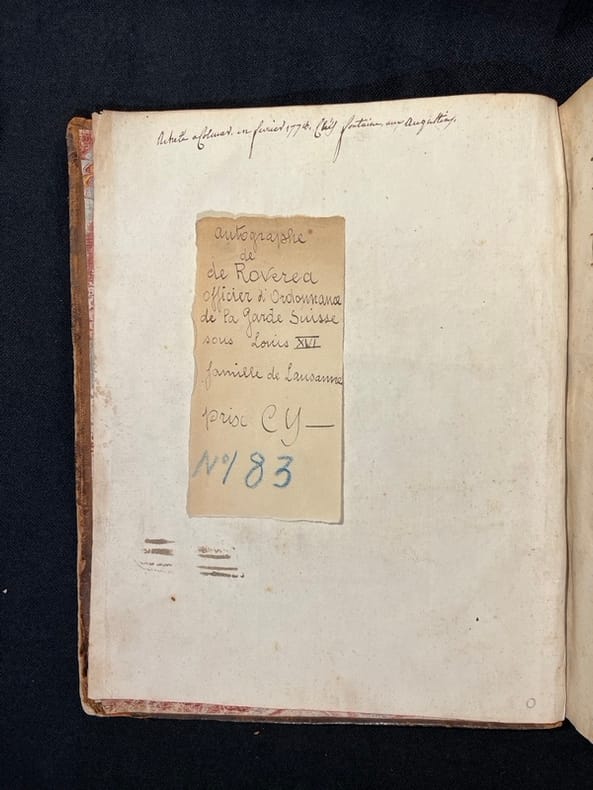 Acheté a Colmar. en fevrier 1774. Chés fontaine aux Augustins.
autographe
de
de Roverea
officier d'Ordonnance
de la Garde Suisse
sous Louis XVI
famille de Lausanne
prix CY—
Nº/83